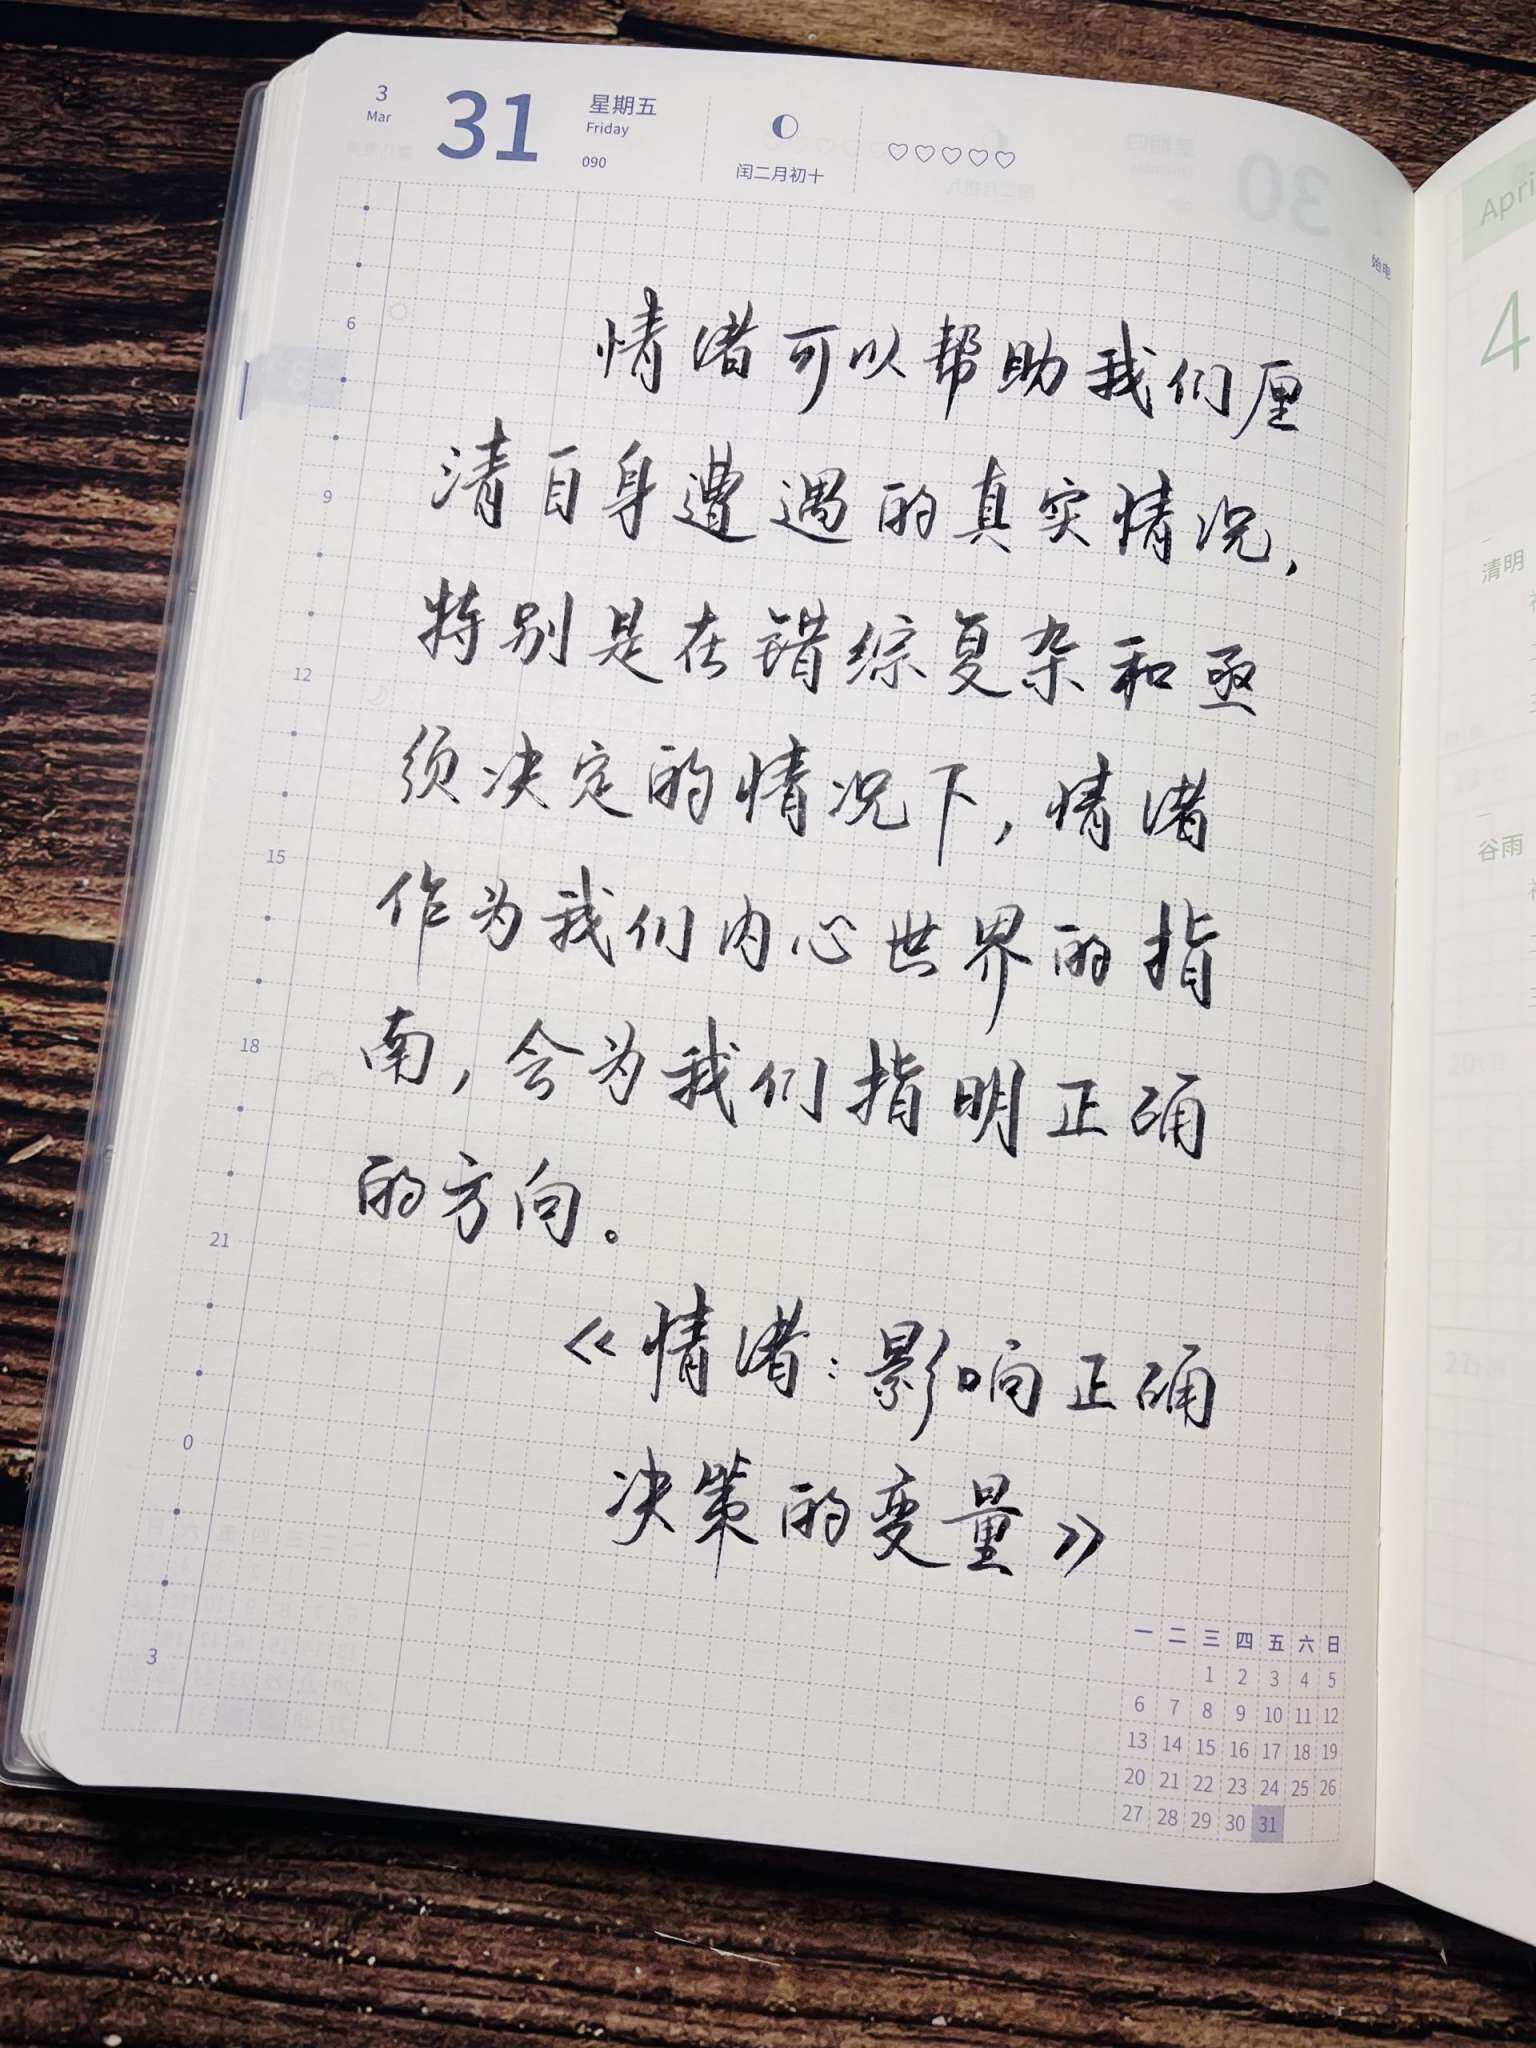 3
Mar
31
星期五
Friday
090
闰二月初十
始电
情绪可以帮助我们厘
清自身遭遇的真实情况，
特别是在错综复杂和亟
须决定的情况下，情绪
作为我们内心世界的指
南，会为我们指明正确
的方向。
《情绪：影响正确
决策的变量》
6
9
12
15
18
21
0
3
一 二 三 四 五 六 日
1 2 3 4 5
6 7 8 9 10 11 12
13 14 15 16 17 18 19
20 21 22 23 24 25 26
27 28 29 30 31
April
4
清明
谷雨